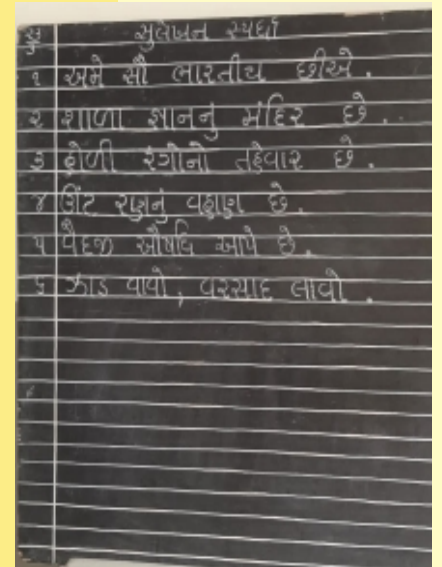 સુલેખન સ્પર્ધા
૧ અમે સૌ ભારતીય છીએ.
૨ શાળા જ્ઞાનનું મંદિર છે.
૩ હોળી રંગોનો તહેવાર છે.
૪ ઊંટ રણનું વહાણ છે.
૫ વૈદજી ઔષધિ આપે છે.
૬ ઝાડ વાવો, વરસાદ લાવો.